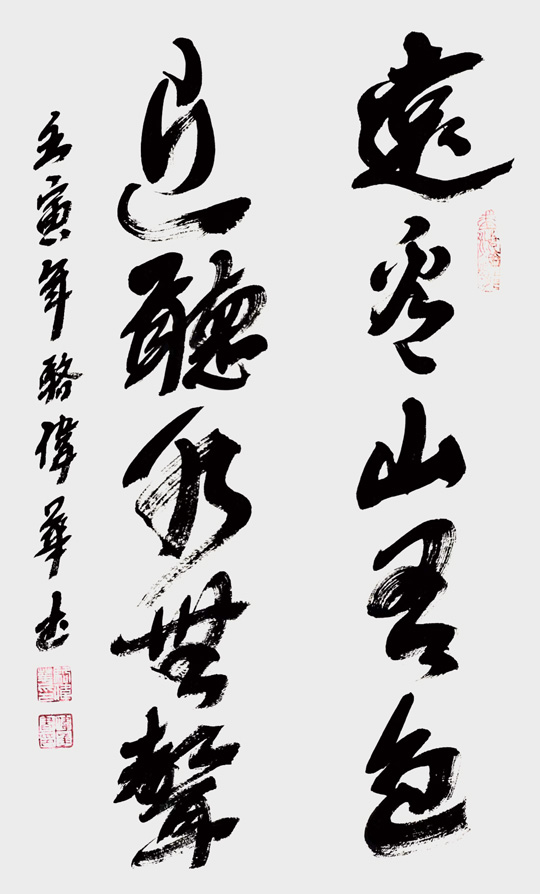 遠看山有色
近聽水無聲
壬寅年駱偉華书